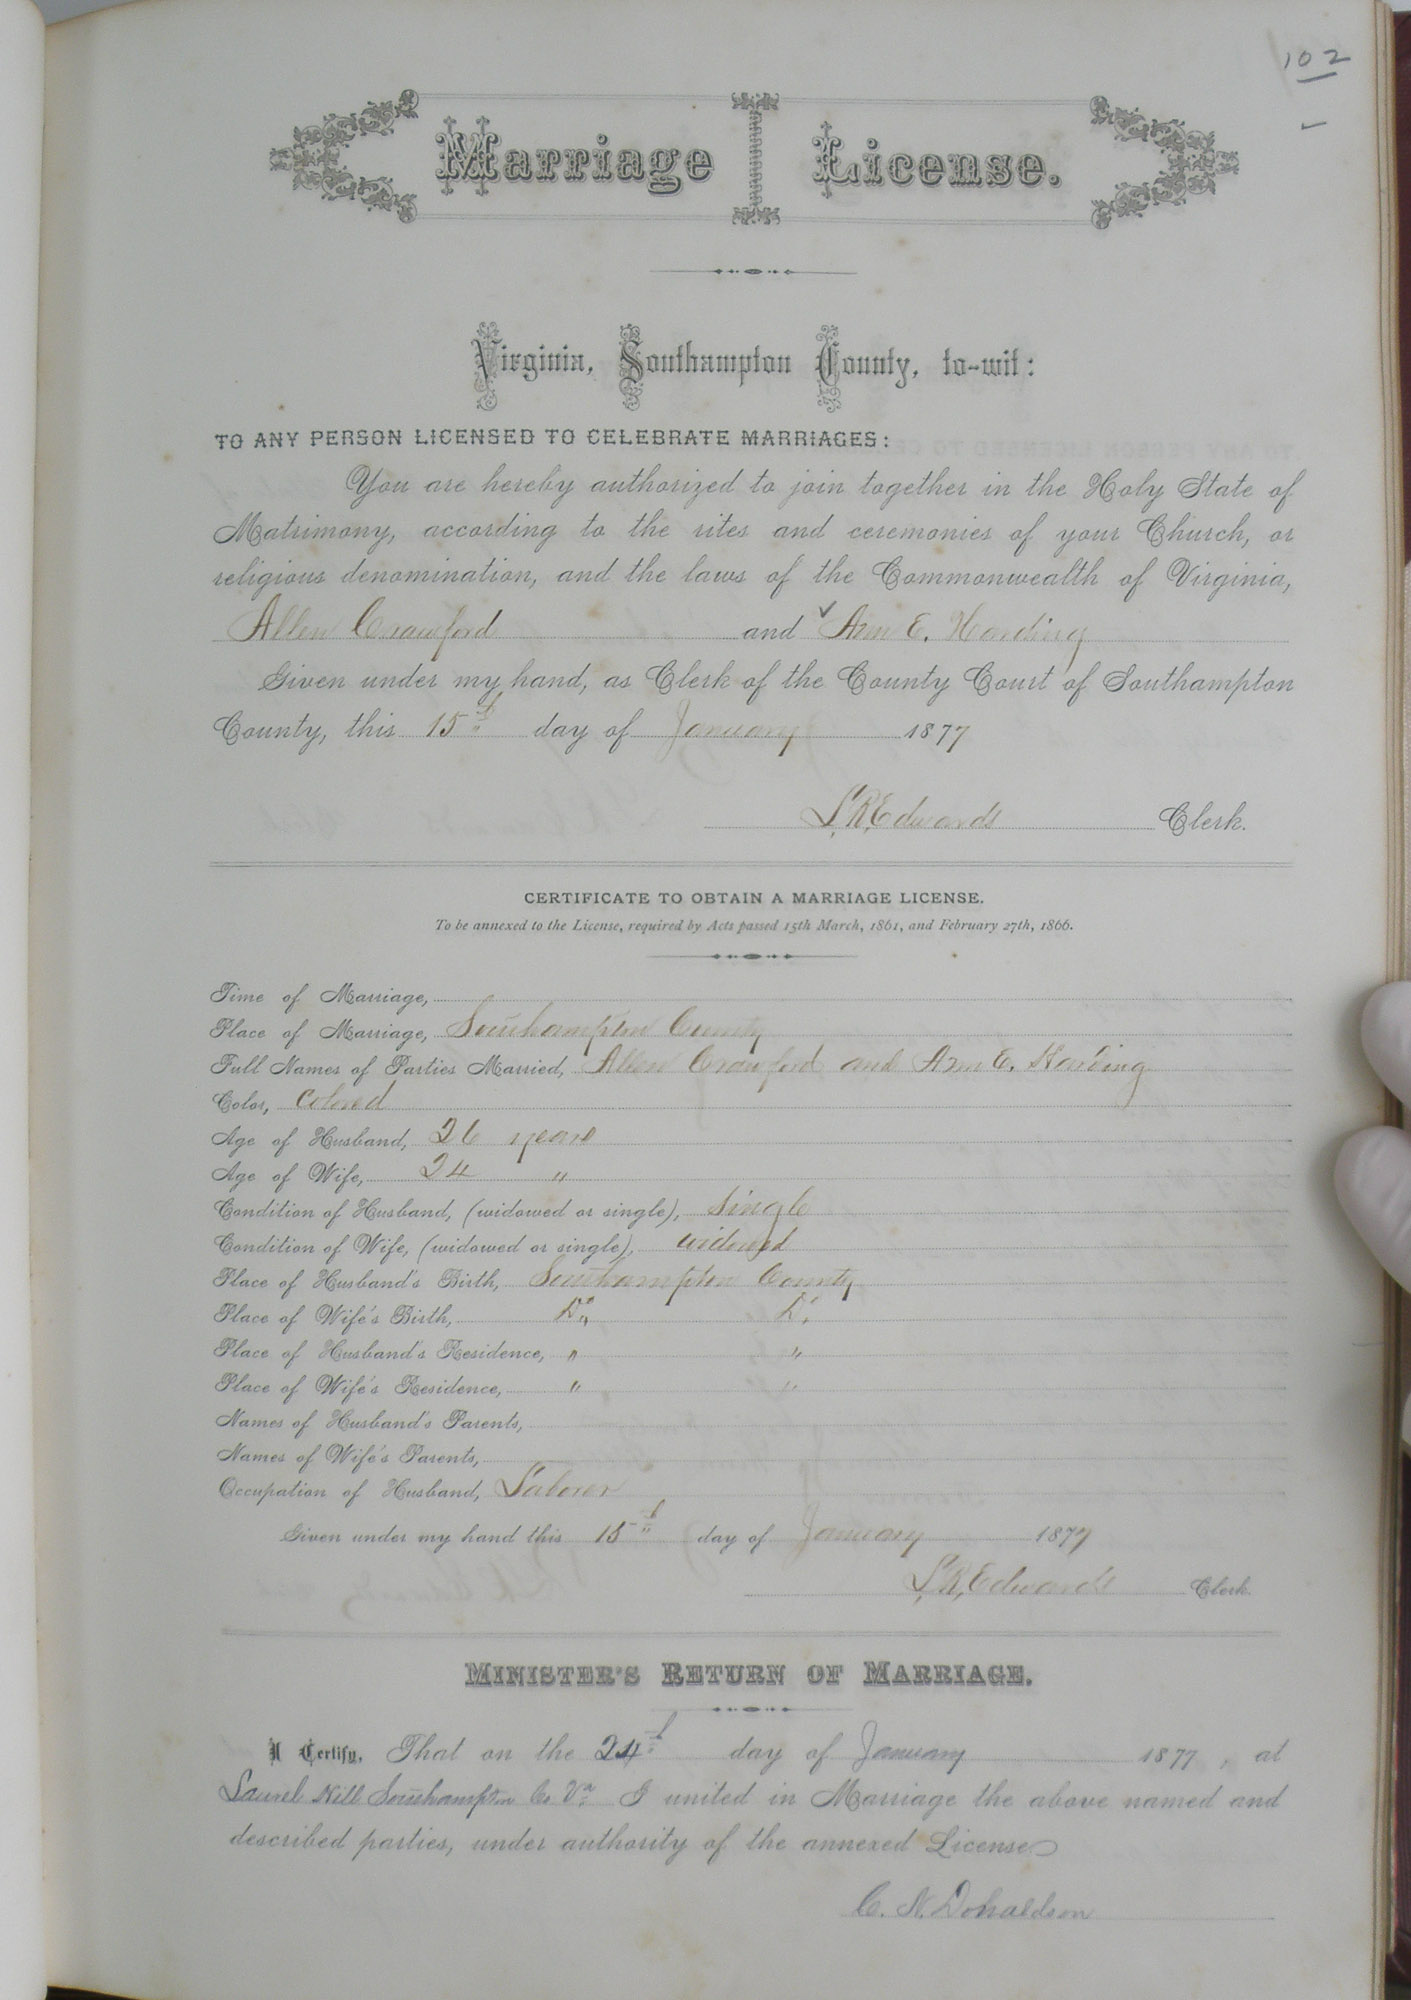 102
Marriage License.
Virginia, Southampton County, to-wit:
TO ANY PERSON LICENSED TO CELEBRATE MARRIAGES:
You are hereby authorized to join together in the Holy State of
Matrimony, according to the rites and ceremonies of your Church, or
religious denomination, and the laws of the Commonwealth of Virginia,
Allen Crawford and Ann E. Harding
Given under my hand, as Clerk of the County Court of Southampton
County, this 15th day of January 1877
L. R. Edwards Clerk.
CERTIFICATE TO OBTAIN A MARRIAGE LICENSE.
To be annexed to the License, required by Acts passed 15th March, 1861, and February 27th, 1866.
Time of Marriage,
Place of Marriage, Southampton County
Full Names of Parties Married, Allen Crawford and Ann E. Harding
Color, Colored
Age of Husband, 26 years
Age of Wife, 24 "
Condition of Husband, (widowed or single), Single
Condition of Wife, (widowed or single), widowed
Place of Husband's Birth, Southampton County
Place of Wife's Birth, Do Do
Place of Husband's Residence, " "
Place of Wife's Residence, " "
Names of Husband's Parents,
Names of Wife's Parents,
Occupation of Husband, Laborer
Given under my hand this 15th day of January 1877
L. R. Edwards Clerk.
MINISTER'S RETURN OF MARRIAGE.
I Certify, That on the 24th day of January 1877, at
Laurel Hill Southampton Co Va. I united in Marriage the above named and
described parties, under authority of the annexed License
C. N. Donaldson